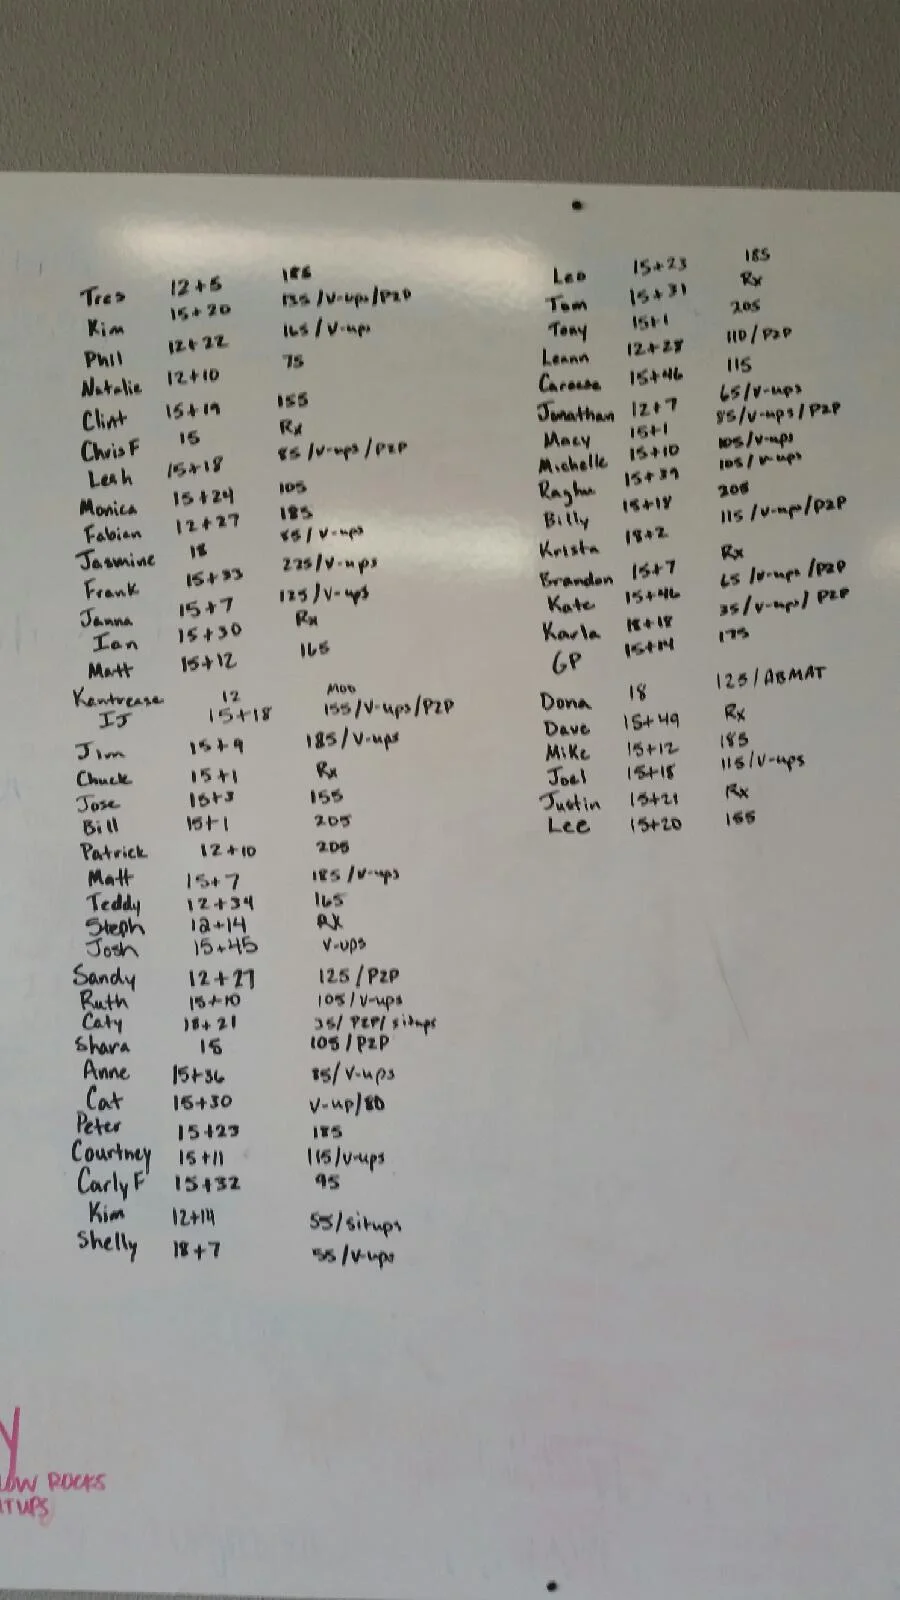 Tres 12+5 185
Kim 15+20 135/V-ups/P2P
Phil 12+22 165/V-ups
Natalie 12+10 75
Clint 15+19 155
Chris F 15 Rx
Leah 15+18 85/V-ups/P2P
Monica 15+24 105
Fabian 12+27 185
Jasmine 18 85/V-ups
Frank 15+33 225/V-ups
Janna 15+7 125/V-ups
Ian 15+30 Rx
Matt 15+12 165
Kentrease 12 MOD
IJ 15+18 155/V-ups/P2P
Jim 15+9 185/V-ups
Chuck 15+1 Rx
Jose 15+3 155
Bill 15+1 205
Patrick 12+10 205
Matt 15+7 185/V-ups
Teddy 12+34 165
Steph 12+14 RX
Josh 15+45 V-ups
Sandy 12+27 125/P2P
Ruth 15+10 105/V-ups
Caty 18+21 35/P2P/situps
Shara 15 105/P2P
Anne 15+36 85/V-ups
Cat 15+30 V-up/80
Peter 15+23 185
Courtney 15+11 115/V-ups
Carly F 15+32 95
Kim 12+14 55/situps
Shelly 18+7 55/V-ups
Leo 15+23 185
Tom 15+31 Rx
Tony 15+1 205
Leann 12+28 110/P2P
15+46 115
Jonathan 12+7 65/V-ups
Macy 15+1 85/V-ups/P2P
Michelle 15+10 105/V-ups
Raghu 15+39 105/V-ups
Billy 15+18 205
Krista 18+2 115/V-ups/P2P
Brandon 15+7 Rx
Kate 15+46 65/V-ups/P2P
Karla 18+18 35/V-ups/P2P
GP 15+14 175
Dona 18 125/ABMAT
Dave 15+49 Rx
Mike 15+12 185
Joel 15+18 115/V-ups
Justin 15+21 Rx
Lee 15+20 155
Y
LOW ROCKS
ITUPS